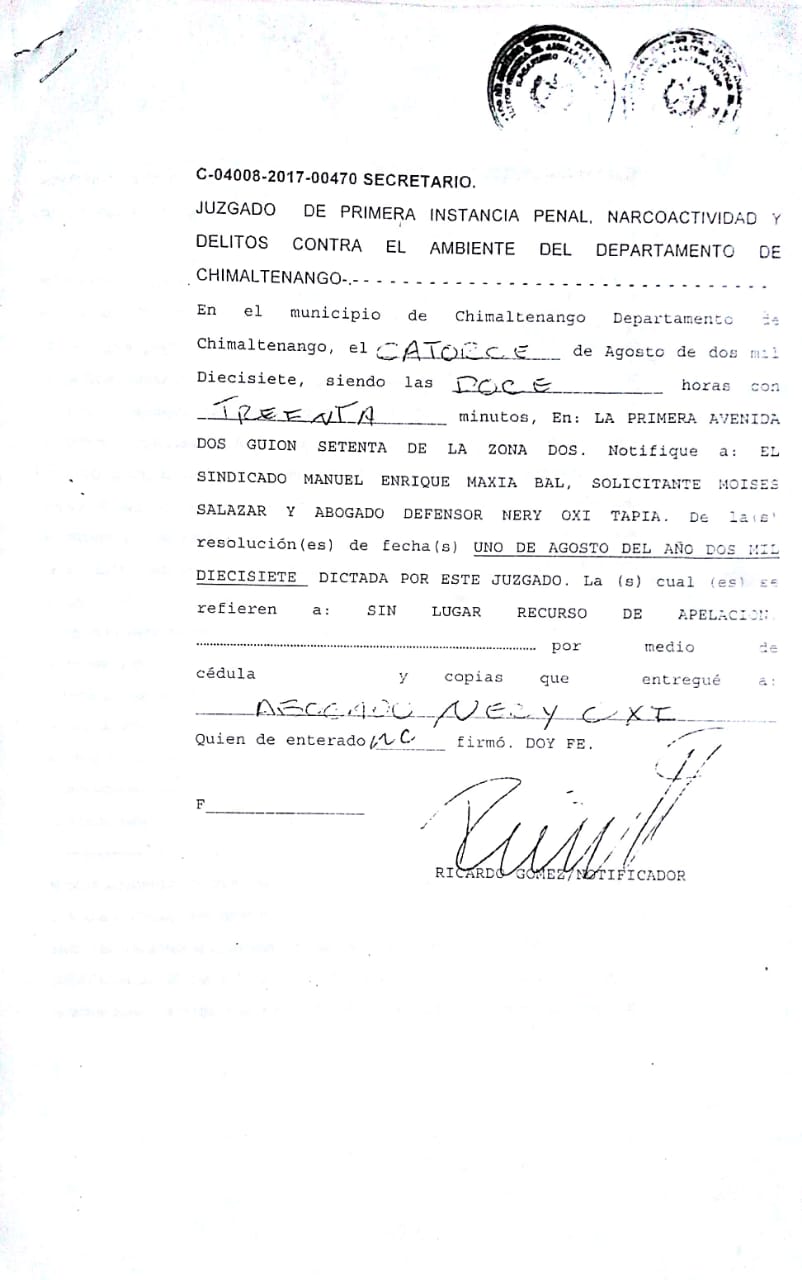 C-04008-2017-00470 SECRETARIO.
JUZGADO DE PRIMERA INSTANCIA PENAL, NARCOACTIVIDAD Y
DELITOS CONTRA EL AMBIENTE DEL DEPARTAMENTO DE
CHIMALTENANGO-.- - - - - - - - - - - - - - - - - - - - - - - - - - - - - - - - -
En el municipio de Chimaltenango Departamento de
Chimaltenango, el CATORCE de Agosto de dos mil
Diecisiete, siendo las DOCE horas con
TREENTA minutos, En: LA PRIMERA AVENIDA
DOS GUION SETENTA DE LA ZONA DOS. Notifique a: EL
SINDICADO MANUEL ENRIQUE MAXIA BAL, SOLICITANTE MOISES
SALAZAR Y ABOGADO DEFENSOR NERY OXI TAPIA. De la(s)
resolución(es) de fecha(s) UNO DE AGOSTO DEL AÑO DOS MIL
DIECISIETE DICTADA POR ESTE JUZGADO. La (s) cual (es) se
refieren a: SIN LUGAR RECURSO DE APELACION.
por medio de
cédula y copias que entregué a:
ABOGADO NERY OXI
Quien de enterado NO firmó. DOY FE.
F
RICARDO GOMEZ/NOTIFICADOR